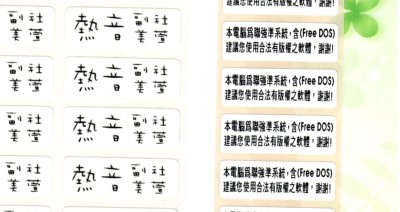 副社
美萱
熱音副社
美萱
建議您使用合法有版權之軟體，謝謝!
副社
美萱
熱音副社
美萱
本電腦爲聯強準系統，含(Free DOS)
建議您使用合法有版權之軟體，謝謝!
副社
美萱
熱音副社
美萱
本電腦爲聯強準系統，含(Free DOS)
建議您使用合法有版權之軟體，謝謝!
副社
美萱
熱音副社
美萱
本電腦爲聯強準系統，含(Free DOS)
建議您使用合法有版權之軟體，謝謝!
本電腦爲聯強準系統，含(Free DOS)
建議您使用合法有版權之軟體，謝謝!